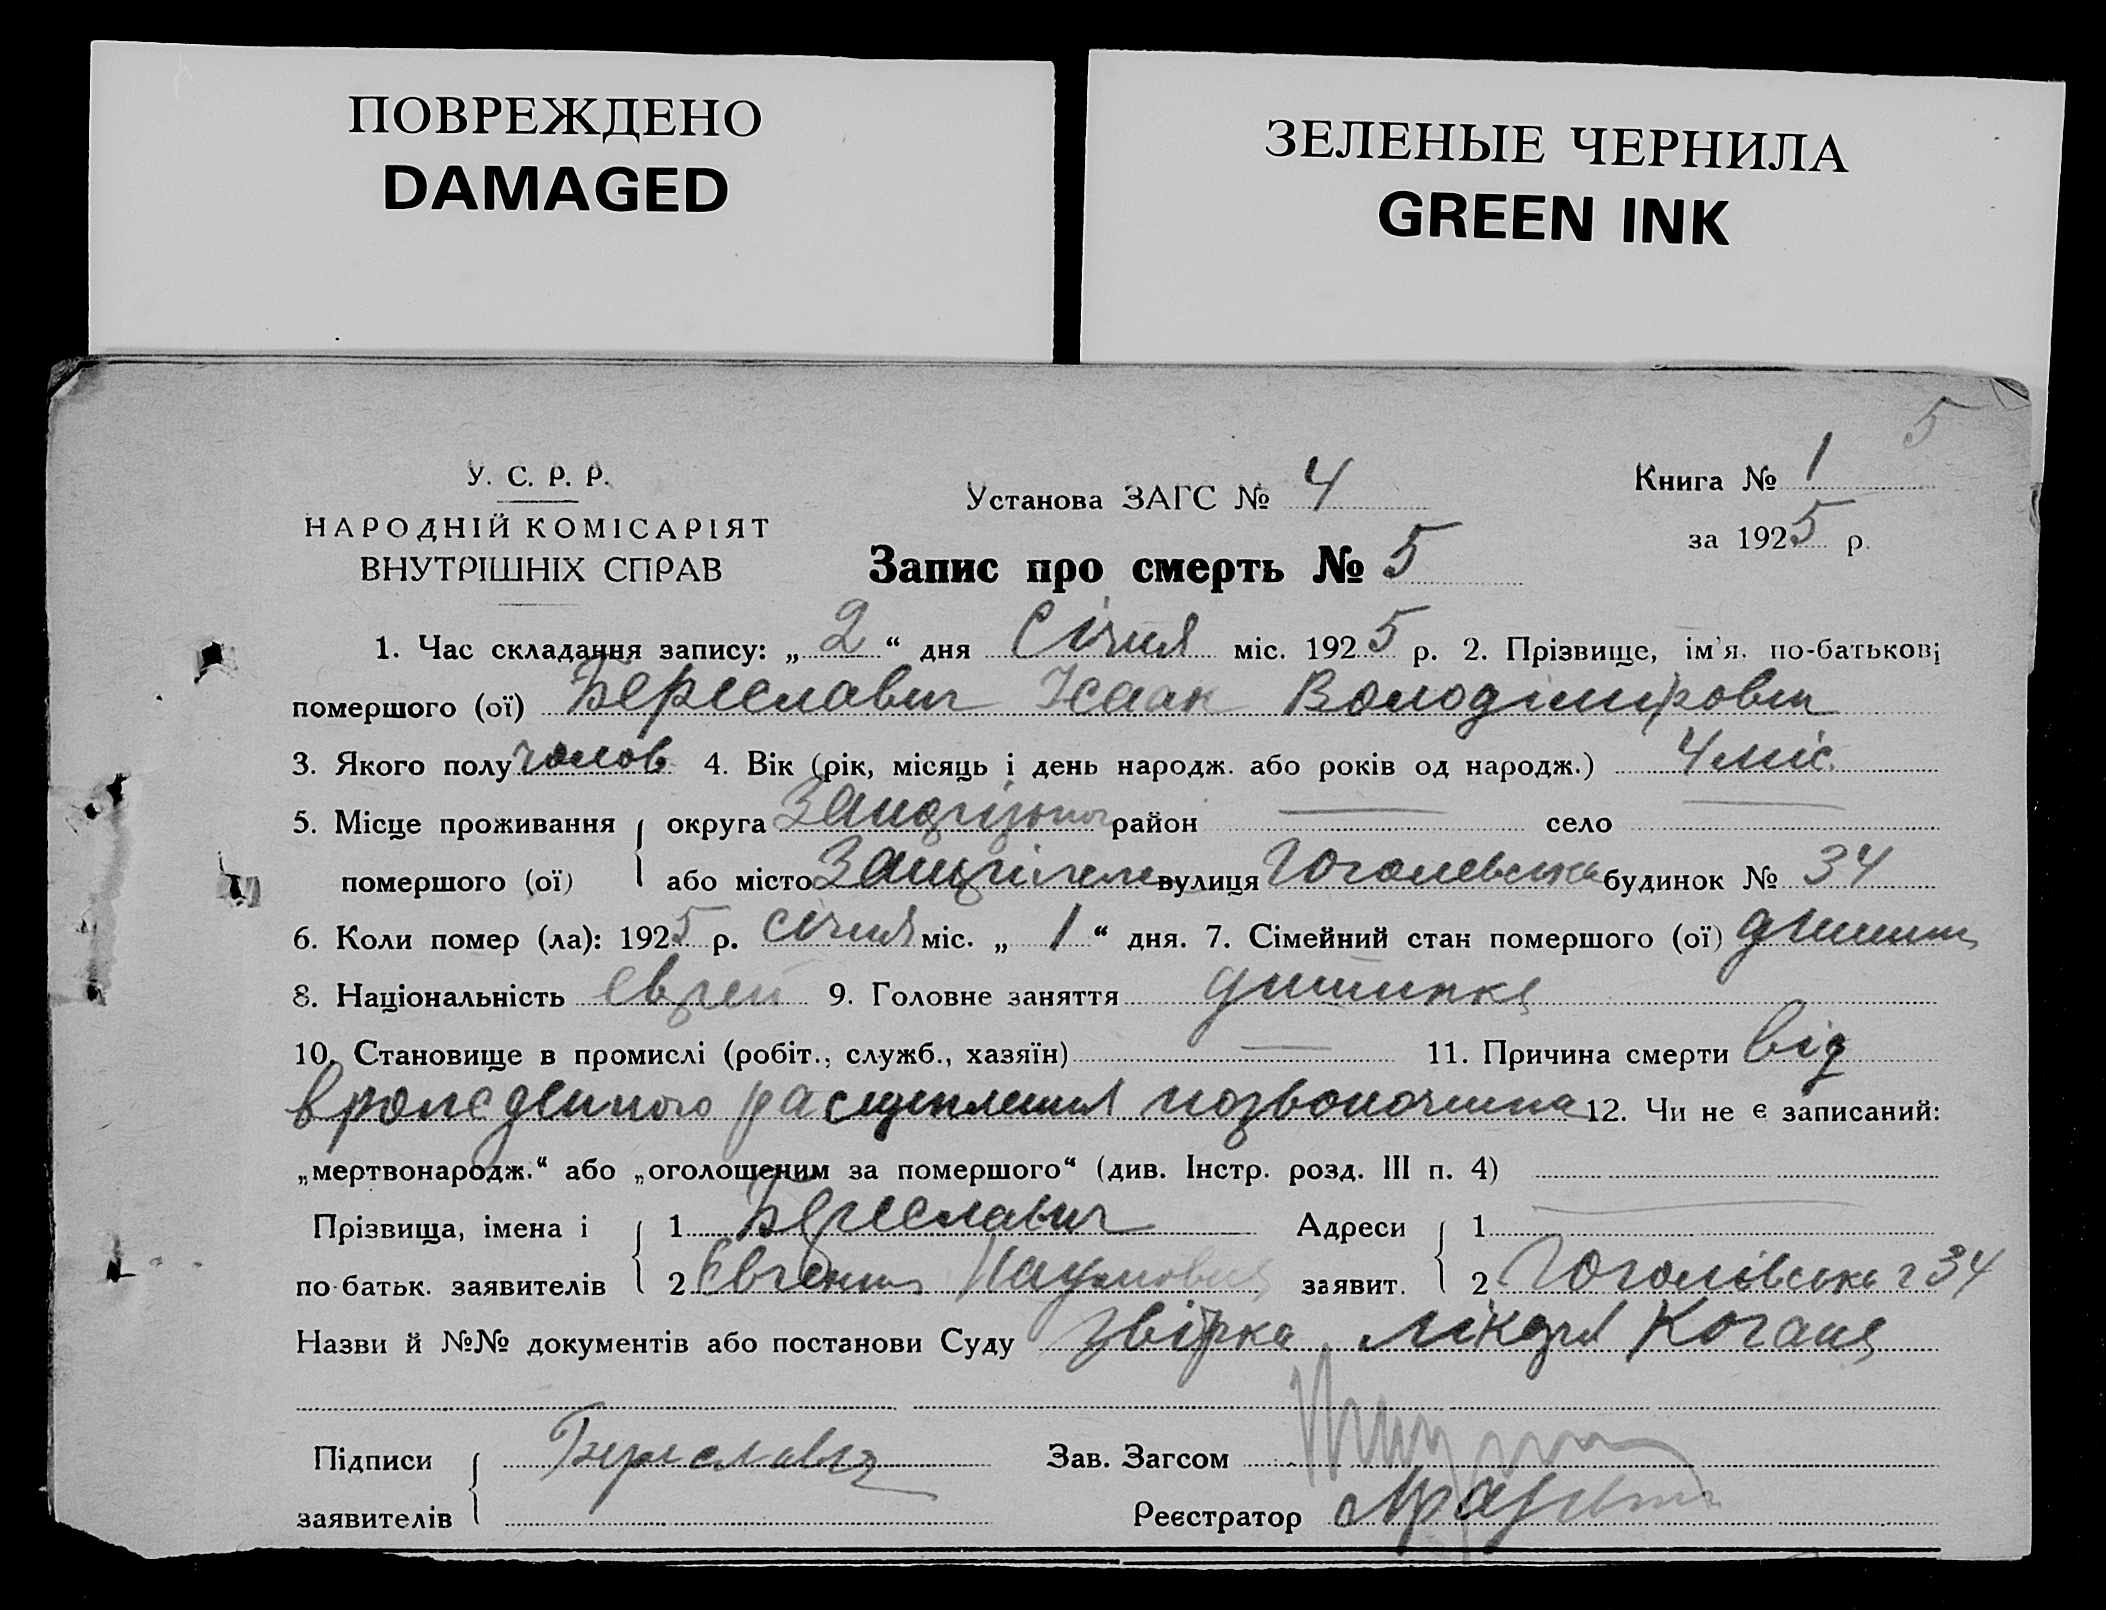 ПОВРЕЖДЕНО
DAMAGED
ЗЕЛЕНЫЕ ЧЕРНИЛА
GREEN INK
5
У. С. Р. Р.
НАРОДНІЙ КОМІСАРІЯТ
ВНУТРІШНІХ СПРАВ
Установа ЗАГС № 4
Книга № 1
за 1925 р.
Запис про смерть № 5
1. Час складання запису: „ 2 “ дня Січня міс. 1925 р. 2. Прізвище, ім'я, по-батькові
помершого (ої) Береславич Ісаак Володіміровіч
3. Якого полу чолов 4. Вік (рік, місяць і день народж. або років од народж.) 4 міс.
5. Місце проживання округа район — село —
помершого (ої) або місто вулиця Гоголевська будинок № 34
6. Коли помер (ла): 1925 р. січня міс. „ 1 “ дня. 7. Сімейний стан помершого (ої)
8. Національність єврей 9. Головне заняття дитинка
10. Становище в промислі (робіт., служб., хазяїн) — 11. Причина смерти від
врожденного расщепления позвоночника 12. Чи не є записаний:
„мертвонародж.“ або „оголошеним за помершого“ (див. Інстр. розд. III п. 4) —
Прізвища, імена і 1 Береславич Адреси 1
по-батьк. заявителів 2 Євгения Наумовна заявит. 2 Гоголівська 34
Назви й №№ документів або постанови Суду лікаря Когана
Підписи Береславич Зав. Загсом
заявителів Реєстратор